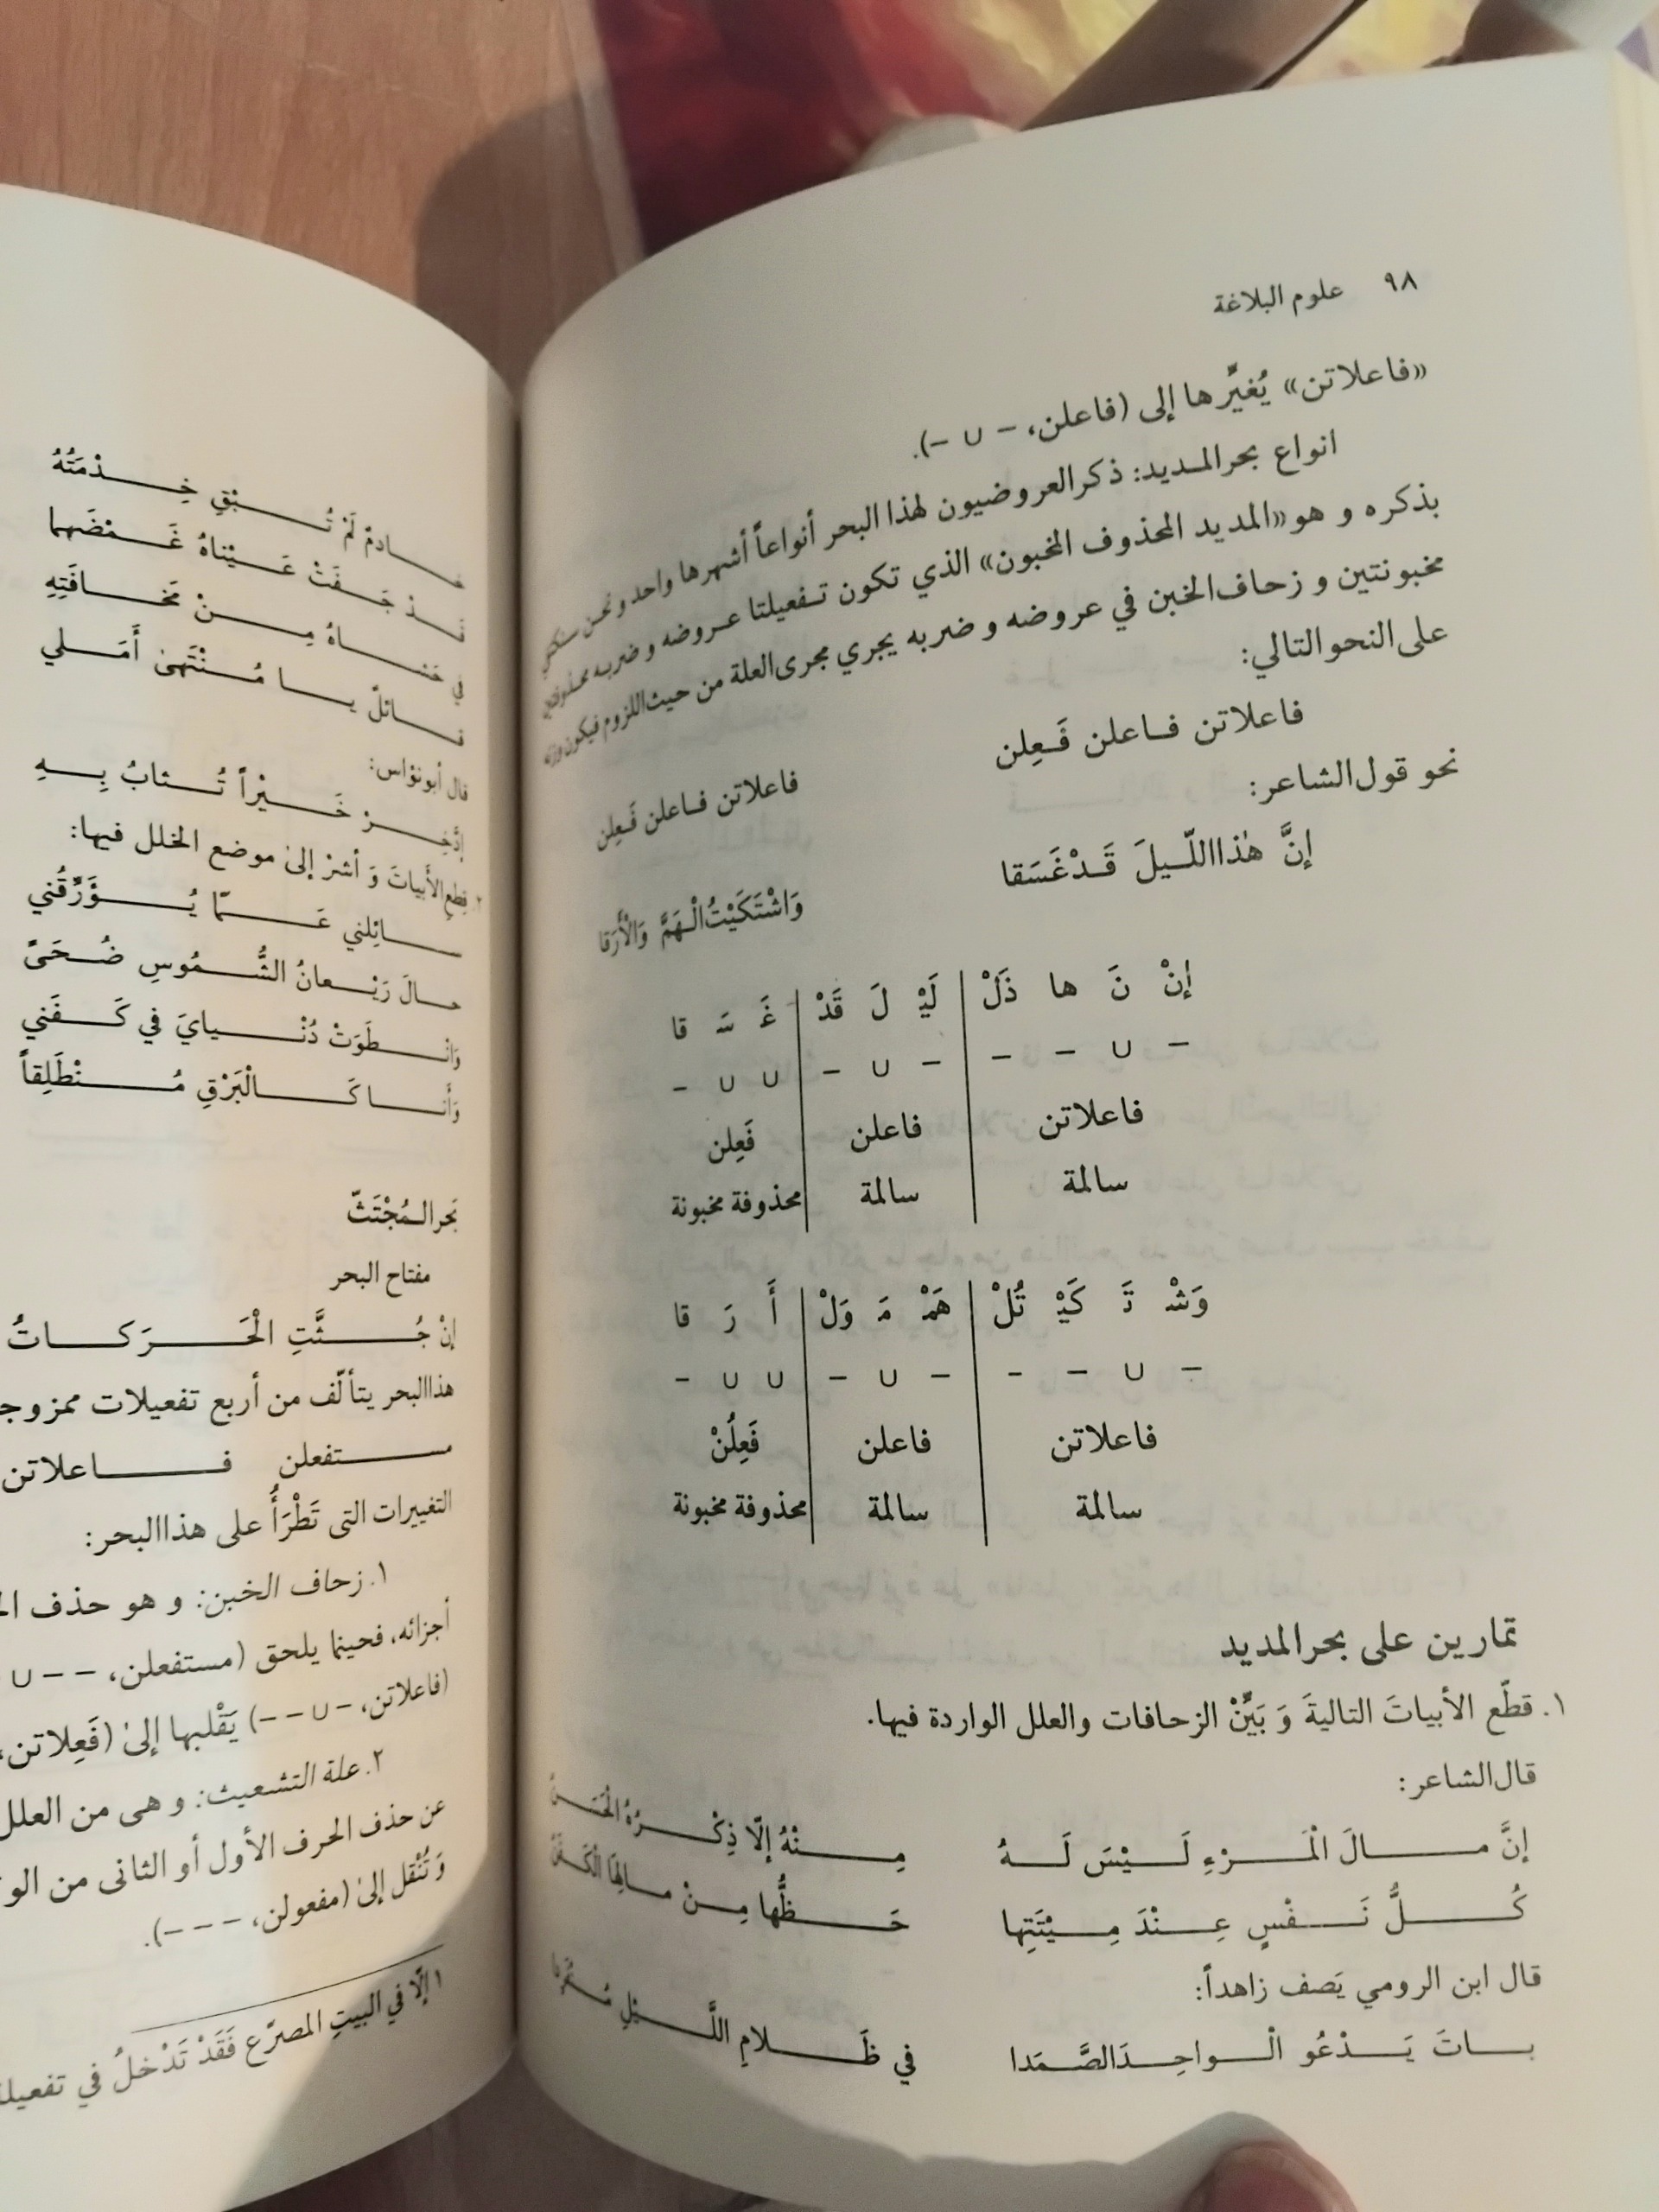 ٩٨ علوم البلاغة
«فاعلاتن» يُغيِّرها إلى (فاعلن، – ∪ –).
انواع بحرالمديد: ذكرالعروضيون لهذا البحر أنواعاً أشهرها واحد و نحن سنكتفي
بذكره و هو«المديد المحذوف المخبون» الذي تكون تفعيلتا عروضه و ضربه محذوفتين
مخبونتين و زحاف‌الخبن في عروضه و ضربه يجري مجرى‌العلة من حيث‌اللزوم فيكون وزنه
على النحو التالي:
فاعلاتن فاعلن فَعِلن فاعلاتن فاعلن فَعِلن
نحو قول‌الشاعر:
إنَّ هٰذااللّيلَ قَدْغَسَقا وَاشْتَكَيْتُ‌الْهَمَّ وَالْأَرَقا
إنْ نَ ها ذَلْ | لَيْ لَ قَدْ | غَ سَ قا
– ∪ – – | – ∪ – | ∪ ∪ –
فاعلاتن | فاعلن | فَعِلن
سالمة | سالمة | محذوفة مخبونة
وَشْ تَ كَيْ تُلْ | هَمْ مَ وَلْ | أَ رَ قا
– ∪ – – | – ∪ – | ∪ ∪ –
فاعلاتن | فاعلن | فَعِلُنْ
سالمة | سالمة | محذوفة مخبونة
تمارين على بحرالمديد
١. قطّع الأبياتَ التاليةَ وَ بَيِّنْ الزحافات والعلل الواردة فيها.
قال‌الشاعر:
إنَّ مالَ الْمَرْءِ لَيْسَ لَهُ مِنْهُ إلّا ذِكْرُهُ الْحَسَنُ
كُلُّ نَفْسٍ عِنْدَ مِيْتَتِها حَظُّها مِنْ مالِهَا الْكَفَنُ
قال ابن الرومي يَصف زاهداً:
باتَ يَدْعُو الْواحِدَالصَّمَدا في ظَلامِ اللَّيْلِ
خادمٌ لَمْ تُبْقِ خِدْمَتُهُ
قَدْ جَفَتْ عَيْناهُ غَمْضَهما
في حَشاهُ مِنْ مَخافَتِهِ
قائلٌ يا مُنْتَهىٰ أَمَلي
قال أبونؤاس:
إدَّخِرْ خَيْراً تُثابُ بِهِ
٢. قِطعِ‌الأَبياتَ وَ أشرْ إلىٰ موضع الخلل فيها:
سائِلني عَمّا يُؤَرِّقُني
حالَ رَيْعانُ الشُّمُوسِ ضُحَىً
وَانْطَوَتْ دُنْيايَ في كَفَني
وَأَنا كَالْبَرْقِ مُنْطَلِقاً
بَحرالمُجْتَثّ
مفتاح البحر
إنْ جُثَّتِ الْحَرَكاتُ
هذاالبحر يتألّف من أربع تفعيلات
مستفعلن فاعلاتن
التغييرات التى تَطْرَأُ على هذاالبحر:
١. زحاف الخبن: و هو حذف
أجزائه، فحينما يلحق (مستفعلن، – – ∪
(فاعلاتن، – ∪ – –) يَقْلبها إلىٰ (فَعِلاتن،
٢. علة التشعيث: و هى من العلل
عن حذف الحرف الأول أو الثانى من
وَ تُنْقل إلىٰ (مفعولن، – – –).
١ إلّا في البيتِ المصرّع فَقَدْ تَدْخلُ في